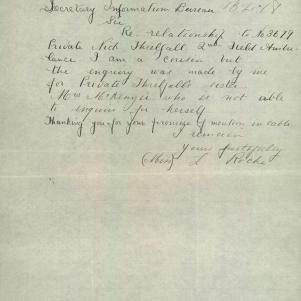 Secretary Information Bureau
Sir
Re- relationship to No 3679
Private Nich Threlfall, 2nd Field Ambu-
lance I am a cousin but
the enquiry was made by me
for Private Threlfall's sister
Mrs McKenzie who is not able
to enquire for herself
Thanking you for your promise of mention in cable
remain
Yours faithfully
(Miss) L Roche